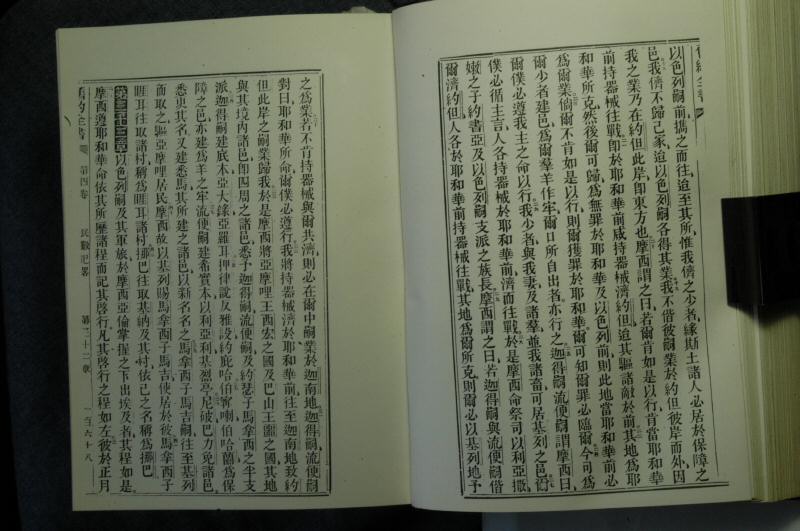 舊約全書
以色列嗣前擕之而往迨至其所惟我儕之少者緣斯土諸人必居於保障之
邑我儕不歸己家迨以色列嗣各得其業我不偕彼嗣業於約但彼岸而外因
我之業乃在約但此岸卽東方也摩西謂之曰若爾肯如是以行肯當耶和華
前持器械往戰卽於耶和華前咸持器械濟約但迨其驅諸敵於前其地爲耶
和華所克然後爾可歸爲無罪於耶和華及以色列前則此地當耶和華前必
爲爾業倘爾不肯如是以行則爾獲罪於耶和華可知爾罪必臨爾今可爲
爾少者建邑爲爾羣羊作牢爾口所自出者亦行之迦得嗣流便嗣謂摩西曰
爾僕必遵我主之命以行我少者與我妻及諸羣並我諸畜可居基列之邑爾
僕必循主言人各持器械於耶和華前濟而往戰於是摩西命祭司以利亞撒
嫩之子約書亞及以色列嗣支派之族長摩西謂之曰若迦得嗣與流便嗣偕
爾濟約但人各於耶和華前持器械往戰其地爲爾所克則爾必以基列地予
之爲業若不肯持器械與爾共濟則必在爾中嗣業於迦南地迦得嗣流便嗣
對曰耶和華所命爾僕必遵行我將持器械濟於耶和華前往至迦南地致約
但此岸之嗣業歸我於是摩西將亞摩哩王西宏之國及巴山王噩之國其地
與其境內諸邑卽四周之諸邑悉予迦得嗣流便嗣及約瑟子馬拿西之半支
派迦得嗣建底本亞大錄亞羅耳押律說反雅設約庇哈伯寗喇伯哈蘭爲保
障之邑亦建爲羊之牢流便嗣建希實本以利亞利基烈亭尼破巴力免諸邑
悉更其名又建悉馬其所建之諸邑以新名名之馬拿西子馬吉嗣往至基列
而取之驅亞摩哩居民摩西故以基列賜馬拿西子馬吉使居於彼馬拿西子
睚耳往取諸村稱爲睚耳諸村挪巴往取基納及其村依己之名稱爲挪巴
第三十三章以色列嗣及其軍旅於摩西亞倫掌握之下出埃及者其程如是
摩西遵耶和華命依其所歷諸程而記其啓行凡其啓行之程如左彼於正月
舊約全書 第四卷 民數紀畧 第三十二章 一百六十八